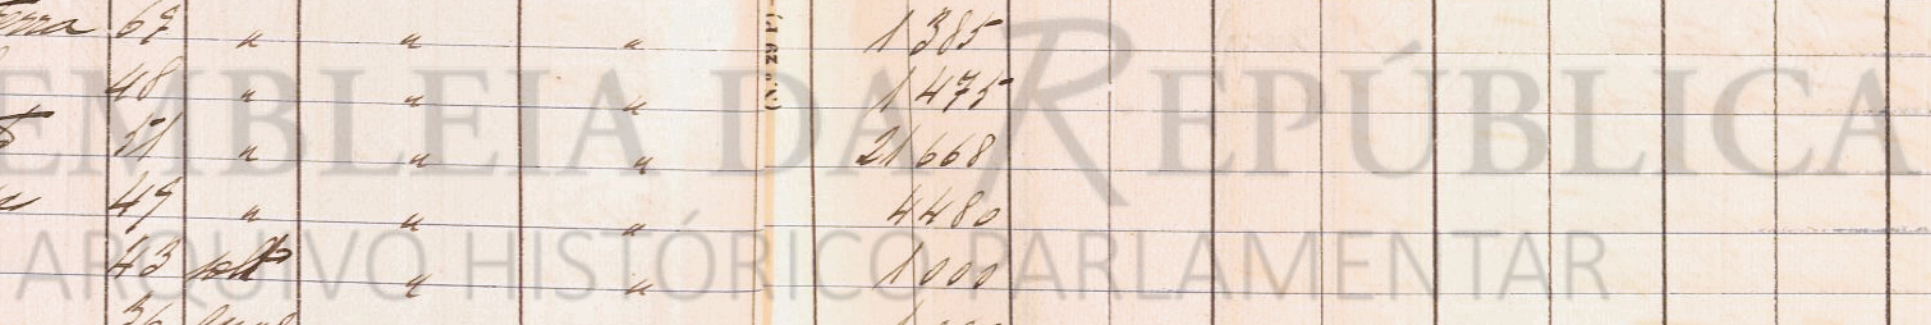 erra 67 " " " 1 385
48 " " " 1 475
51 " " " 21 668
49 " " " 4 480
43 solt.º " " 1 000
36
(N.º 29 P)
ASSEMBLEIA DA REPÚBLICA
ARQUIVO HISTÓRICO PARLAMENTAR